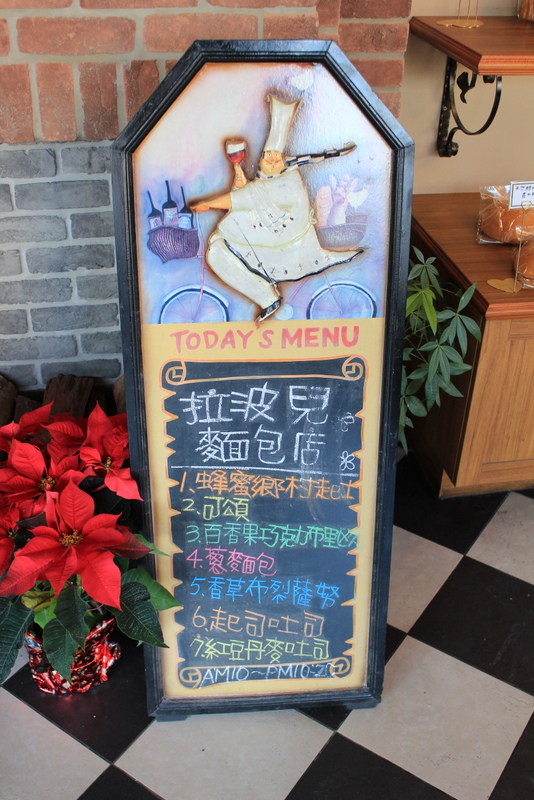 TODAY'S MENU
拉波兒
麵包店
1.蜂蜜鄉村起士
2.可頌
3.百香果巧克力布里歐
4.蔥麵包
5.香草布列薩努
6.起司吐司
7.紅豆丹麥吐司
AM10~PM10:20